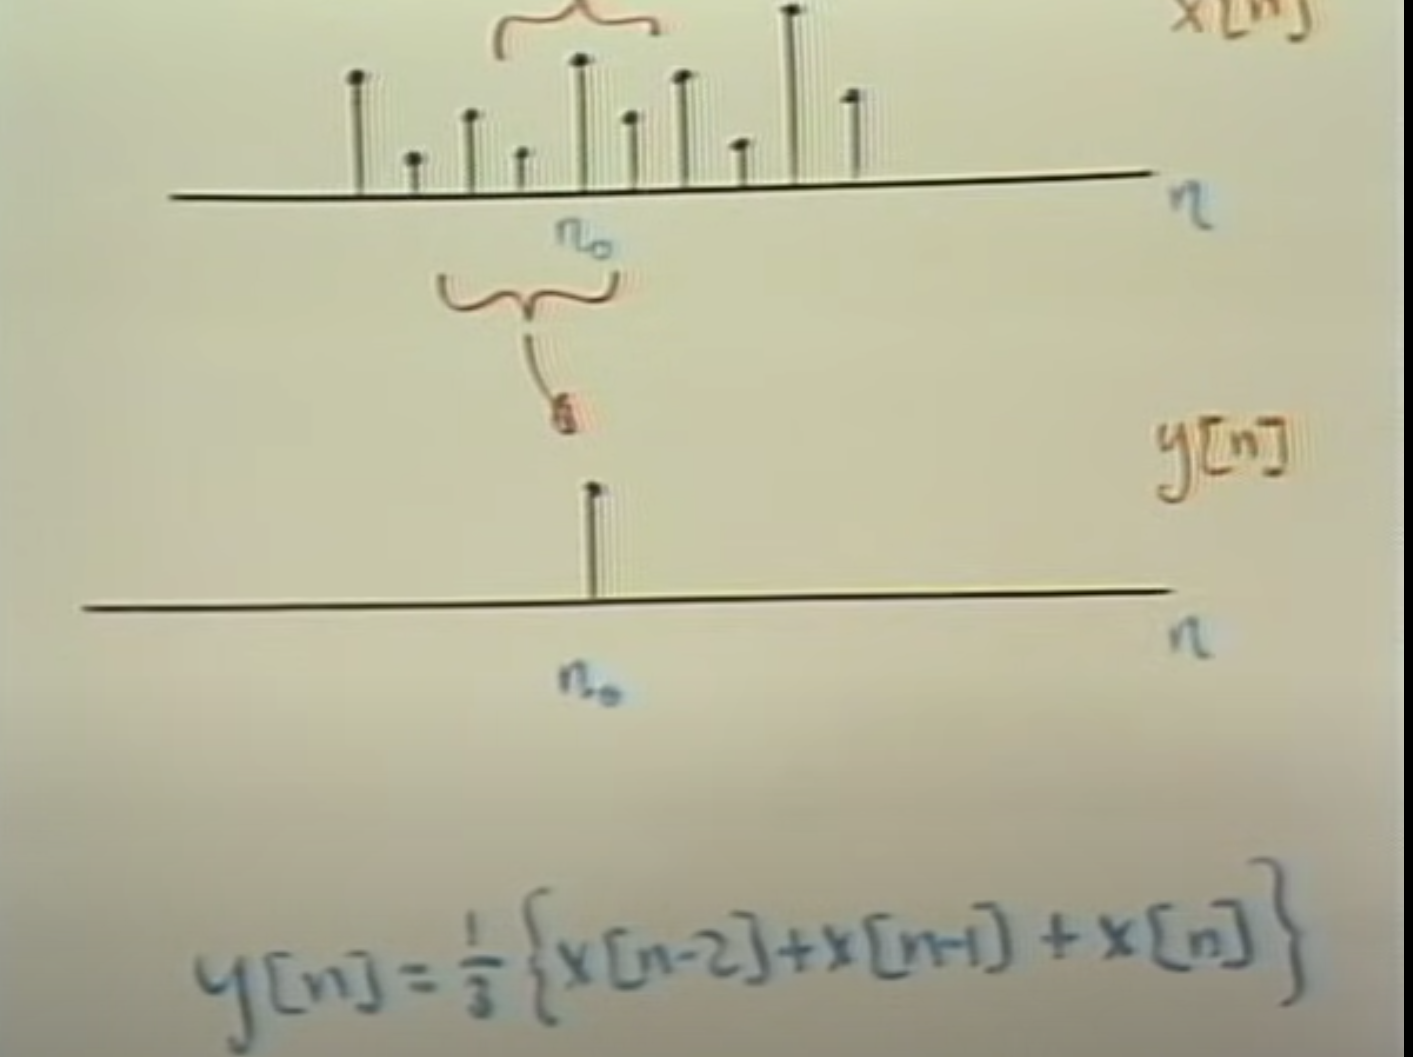 x[n]
n₀
n
y[n]
n
n₀
y[n] = 1/3 {x[n-2]+x[n-1] + x[n]}